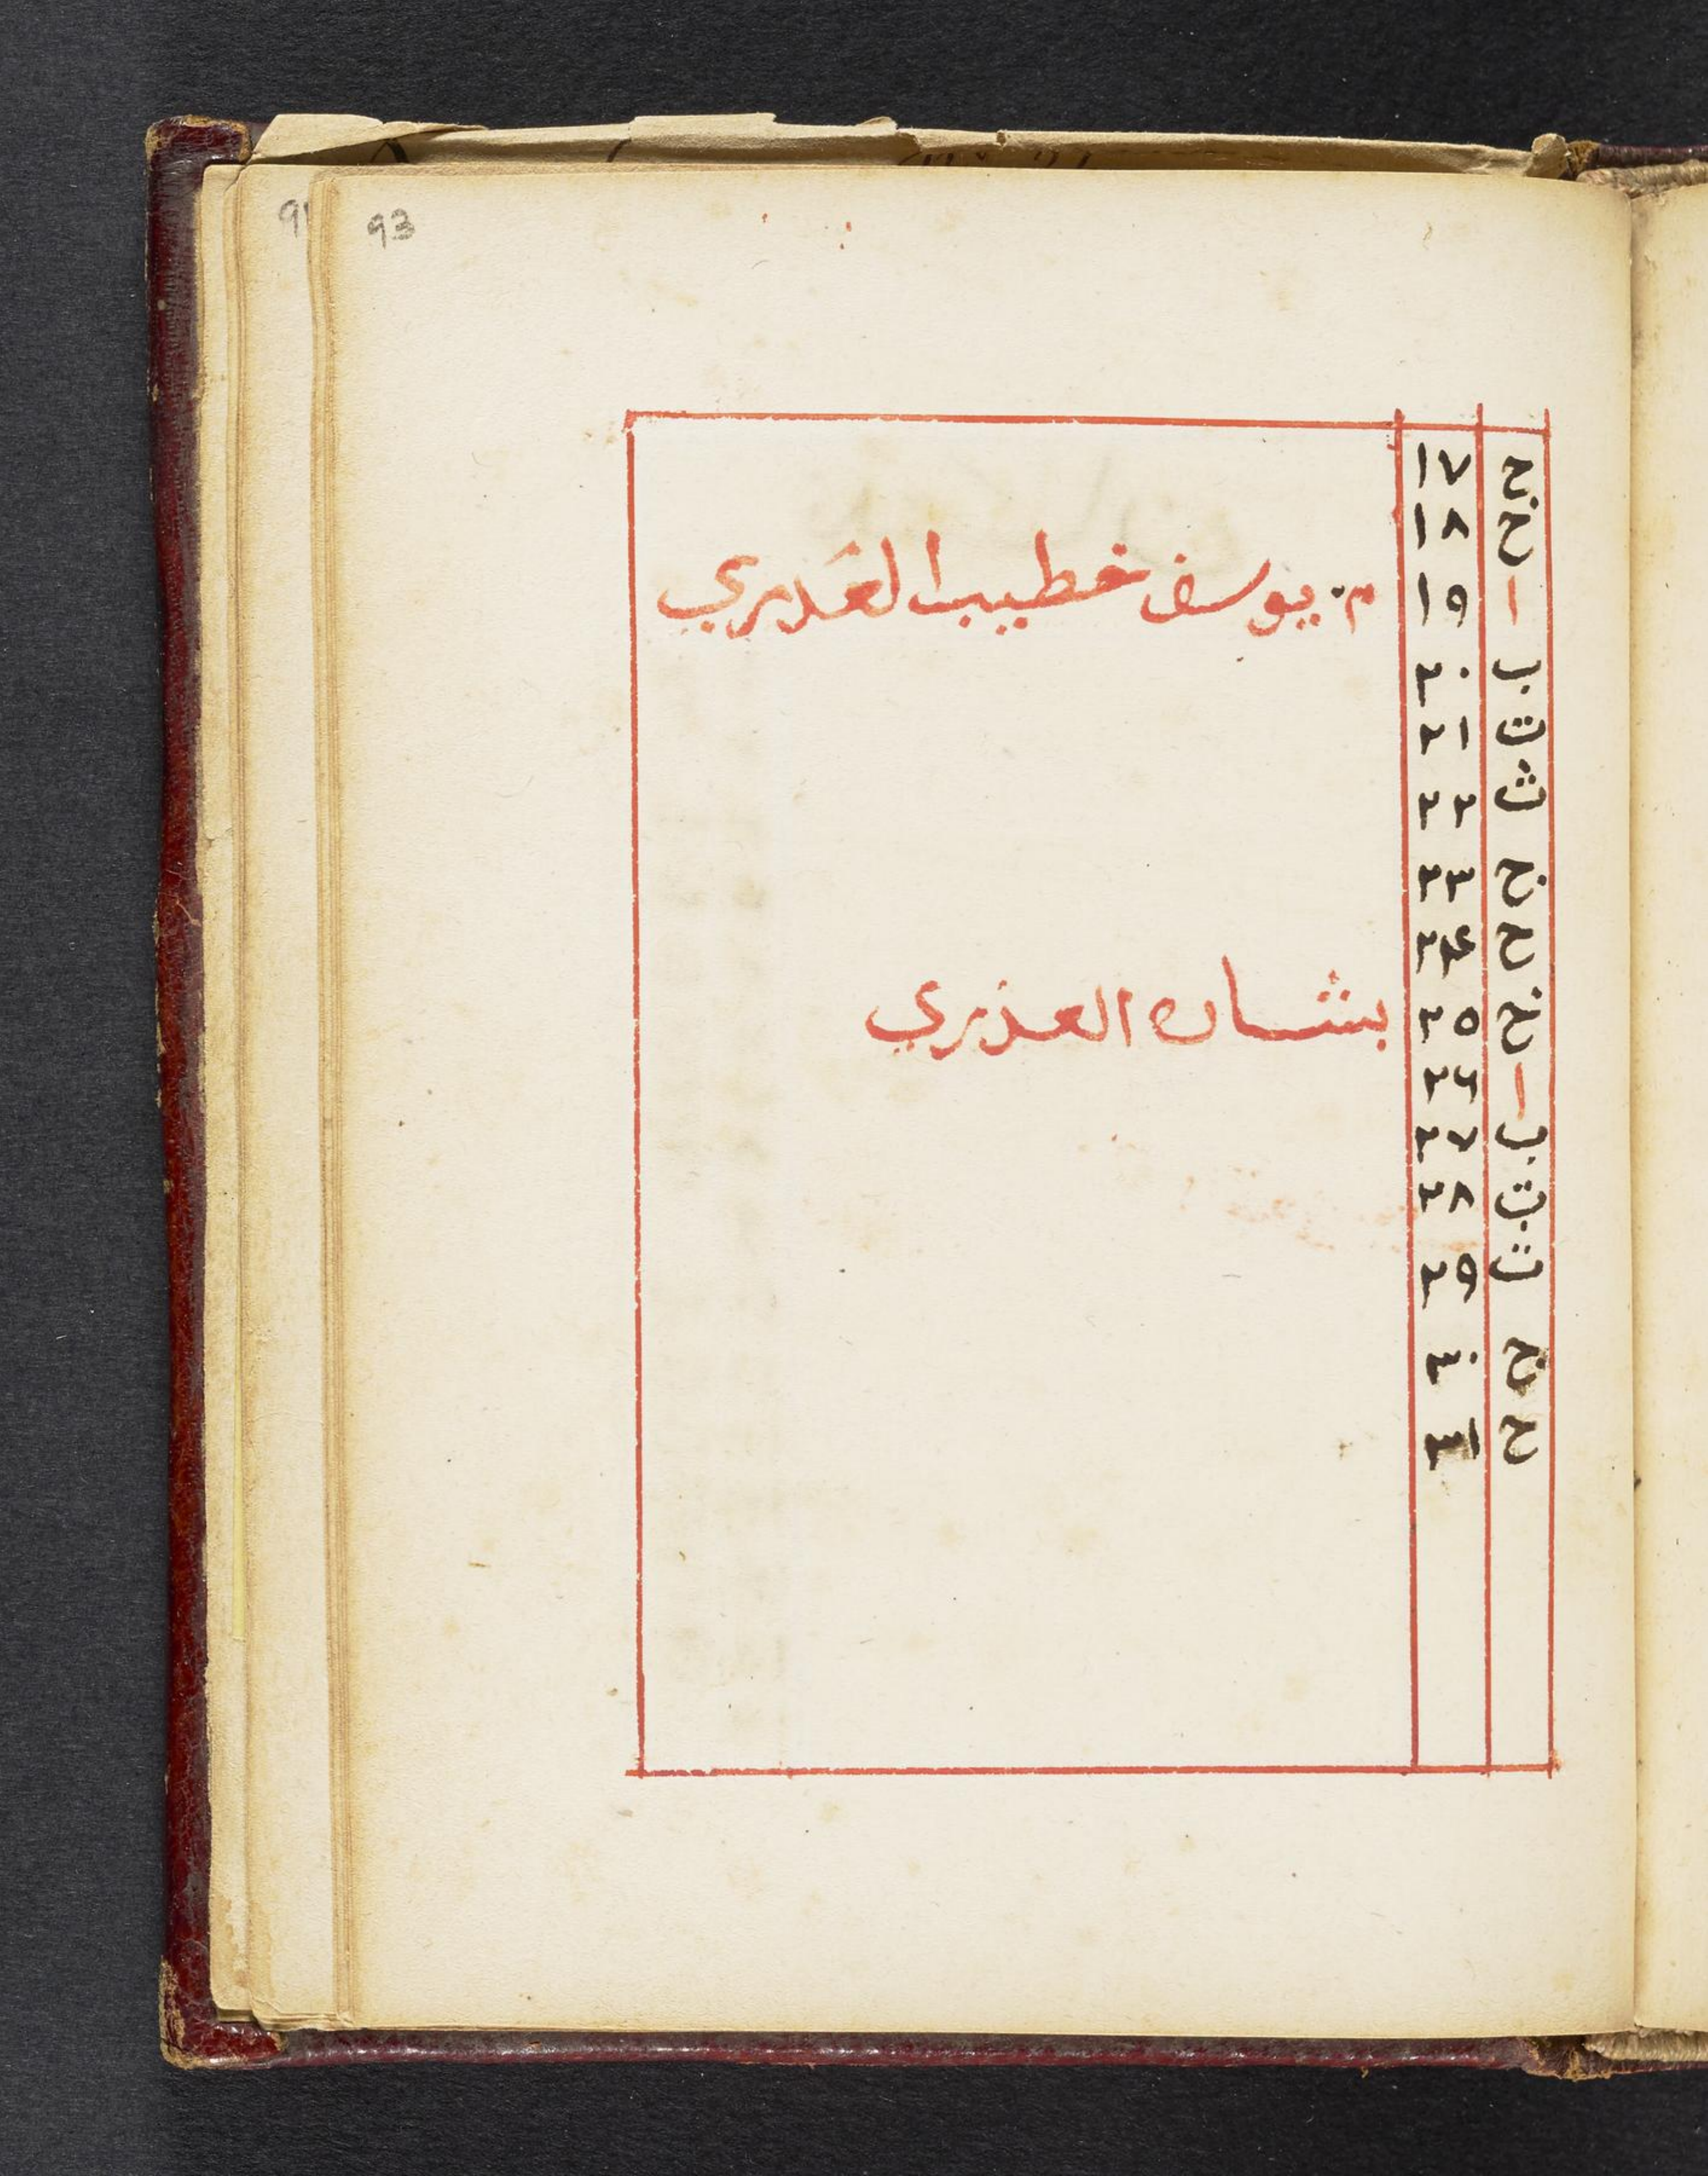 91 93
ح ١٧
خ ١٨
ا ١٩ م. يوسف خطيب العَذري
ب ٢٠
ت ٢١
ث ٢٢
ج ٢٣
ح ٢٤
خ ٢٥ بشاره العذري
ا ٢٦
ب ٢٧
ت ٢٨
ث ٢٩
ج ٣٠
ح ٣١